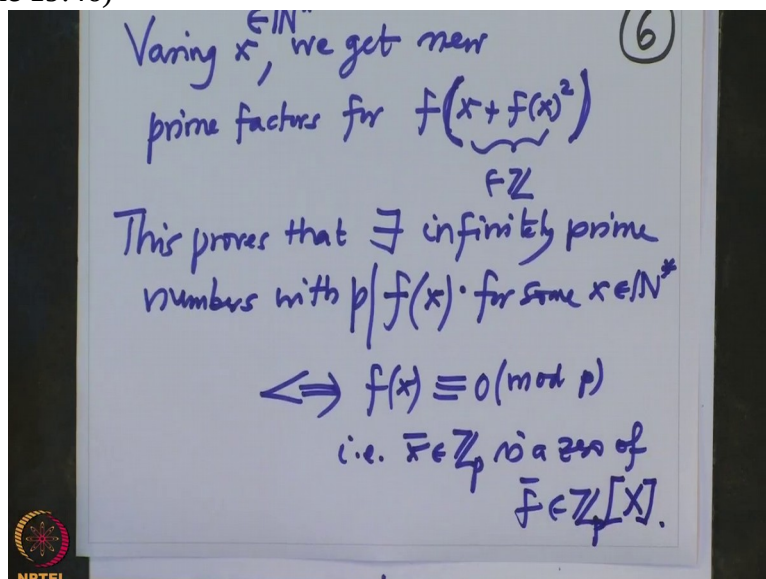 ∈ℕ*
Varing x, we get new
⑥
prime factors for f(x + f(x)²)
∈ℤ
This proves that ∃ infinitely prime
numbers with p | f(x) · for some x ∈ ℕ*
⟺ f(x) ≡ 0 (mod p)
i.e. x̄ ∈ ℤₚ is a zero of
f̄ ∈ ℤₚ[X].
NPTEL